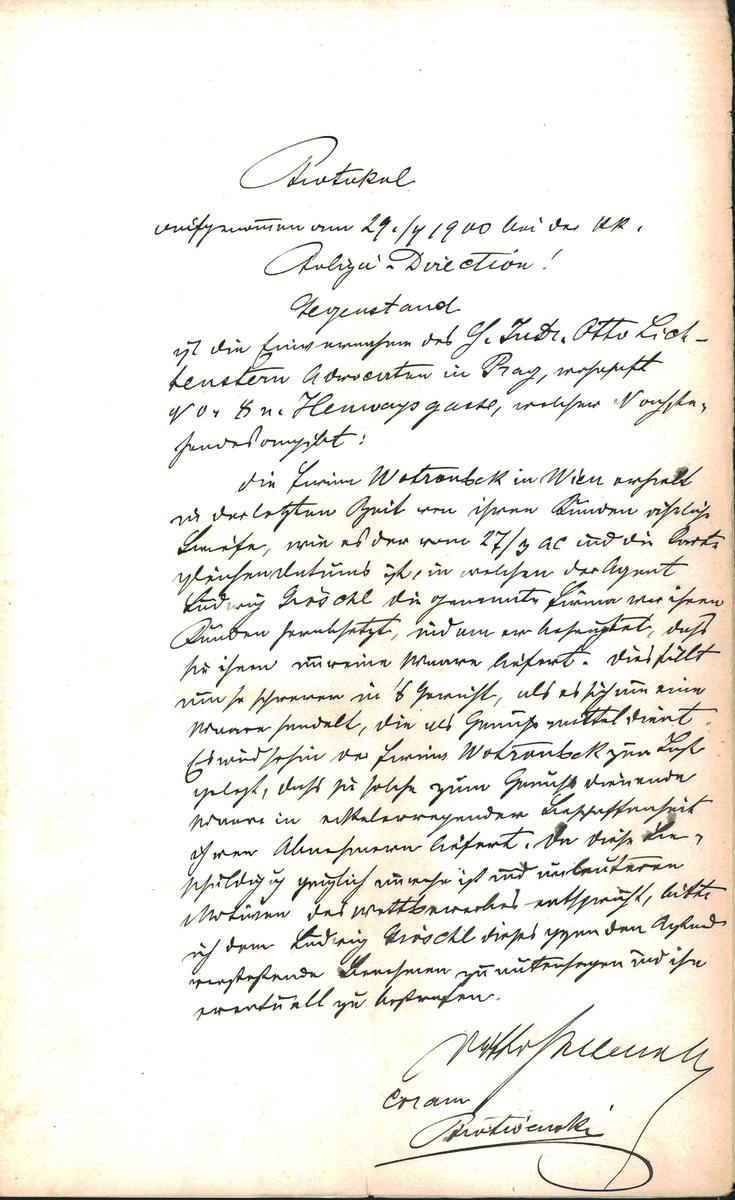 Protokol
aufgenommen am 29./7 1900 bei der kk.
Polizei-Direction!
Gegenstand
ist die Einvernahme des H. JuDr. Otto Lich-
tenstern Advocaten in Prag, wohnhaft
No. 8 n. gasse, welcher Nachste-
hendes angibt:
die Firma Wotraubek in Wien erhielt
in der letzten Zeit von ihren Kunden ähnliche
Briefe, wie es der vom 27/7 ac und die Karte
gleichen Datums ist, in welchen der Agent
Ludwig Gröschl die genannte Firma vor ihren
Kunden herabsetzt, indem er behauptet, dass
sie ihnen unreine Waare liefert. Dies fällt
um so schwerer in's Gewicht, als es sich um eine
Waare handelt, die als Genussmittel dient.
Es wird sohin der Firma Wotraubek zur Last
gelegt, dass sie solche zum Genuss dienende
Waare in eckelerregender Beschaffenheit
ihren Abnehmern liefert. Da diese Be-
schuldig'g gänzlich unwahr ist und unlauteren
Motiven des Wettbewerbes entspricht, bitte
ich dem Ludwig Gröschl dieses gegen den Anstand
verstoßende Benehmen zu untersagen und ihn
eventuell zu bestrafen.
Coram